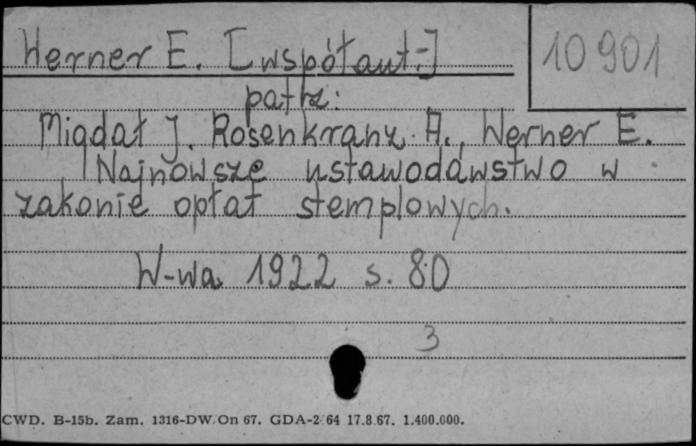 Werner E. [współaut.-]
10 901
patrz:
Migdał J. Rosenkranz A., Werner E.
Najnowsze ustawodawstwo w
zakonie opłat stemplowych.
W-wa 1922 s. 80
3
CWD. B-15b. Zam. 1316-DW/On 67. GDA-2/64 17.8.67. 1.400.000.